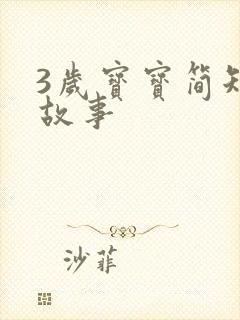 3歲寶寶简
故事
沙菲